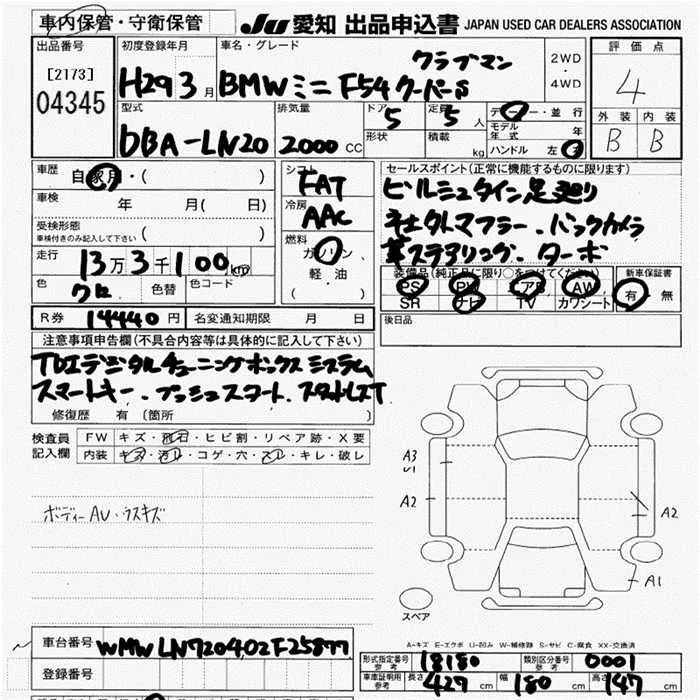 車内保管・守衛保管 JU 愛知 出品申込書 JAPAN USED CAR DEALERS ASSOCIATION
出品番号 初度登録年月 車名・グレード 評価点
[2173] 04345 H29 3月 BMWミニ F54 クーパーS クラブマン 2WD・4WD 4
型式 排気量 ドア 5 定員 5人 ディーラー・並行 外装 内装
DBA-LN20 2000CC 形状 積載 kg モデル年式 年 B B
ハンドル 左・右
車歴 自家用・( ) シフト FAT セールスポイント(正常に機能するものに限ります)
車検 年 月( 日) 冷房 AAC ビルシュタイン足廻り
受検形態 車検付きのみ記入して下さい ( ) 社外マフラー、バックカメラ
走行 13万3千100km 燃料 ガソリン・軽・油 ( ) 革ステアリング、ターボ
色 クロ 色替 色コード 装備品(純正品に限り○をつけてください) 新車保証書
PS PW エアB AW 有・無
SR ナビ TV カワシート
R券 14440円 名変通知期限 月 日 後日品
注意事項申告欄(不具合内容等は具体的に記入して下さい)
TDIデジタルチューニングボックスシステム
スマートキー、プッシュスタート、スタッドレスT
修復歴 有 〔箇所 〕
検査員記入欄 FW キズ・飛石・ヒビ割・リペア跡・X要
内装 キズ・汚レ・コゲ・穴・スレ・キレ・破レ
A3
U1
A2
A2
ボディーAU・ウスキズ
A1
スペア
A-キズ E-エクボ U-凹み W-補修跡 S-サビ C-腐食 XX-交換済
車台番号 WMWLN720402F25877 形式指定番号 参考 18180 類別区分番号 参考 0001
登録番号 車庫証明用 参考 長さ 427cm 幅 180cm 高さ 147cm